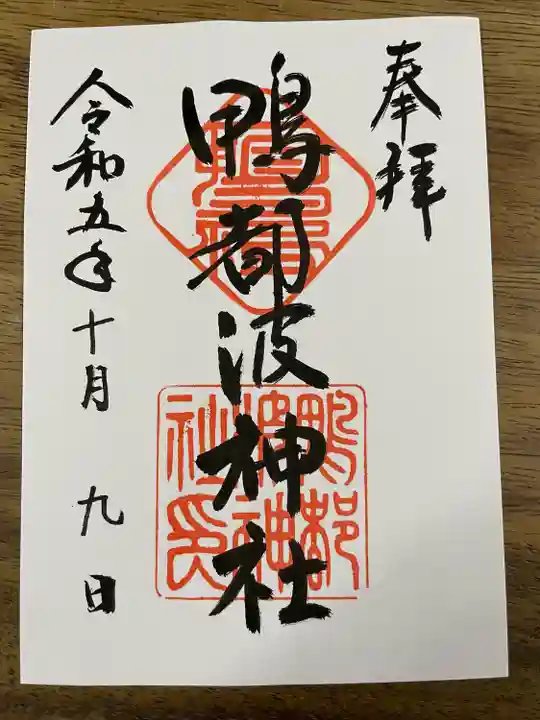 奉拝
鴨都波神社
鴨都
波神
社印
令和五年十月九日